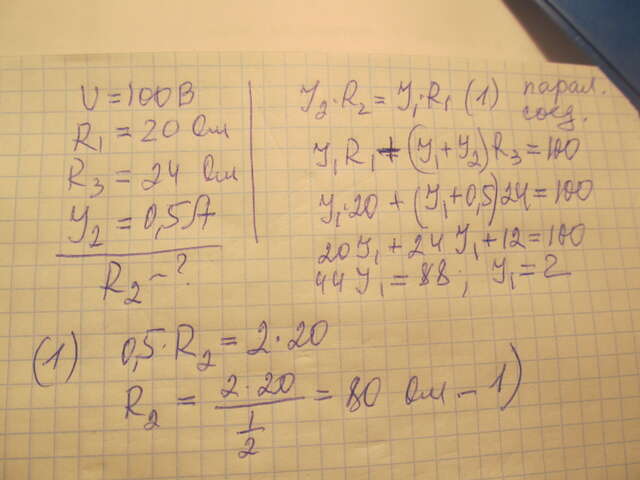 U = 100 В
R₁ = 20 Ом
R₃ = 24 Ом
У₂ = 0,5 А
R₂ - ?
У₂·R₂ = У₁·R₁ (1) парал. соед.
У₁R₁ + (У₁+У₂)R₃ = 100
У₁·20 + (У₁+0,5)24 = 100
20У₁ + 24У₁ + 12 = 100
44У₁ = 88; У₁ = 2
(1) 0,5·R₂ = 2·20
R₂ = 2·20 / 1/2 = 80 Ом - 1)